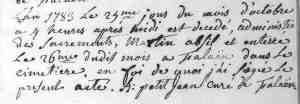 L'an 1783 Le 25me jour du mois d'octobre
a 4 heures après midi est decedé, administré
des Sacrements, Martin absil et enterré
Le 26me dudit mois a dans le
cimetiere, en foi de quoi j'ai signé le
present acte. petit jean Curé a